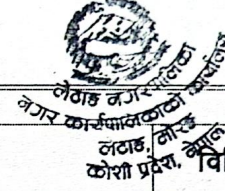 लेटाङ नगरपालिका
नगर कार्यपालिकाको कार्यालय
लेटाङ, मोरङ
कोशी प्रदेश, नेपाल
वि